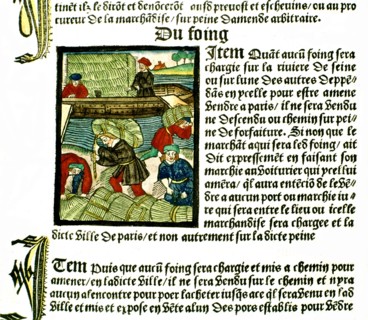 tinēt ilz le dirōt et denōcerōt ausd prevost et eschevins/ ou au pro
cureur de la marchādise/ sur peine damende arbitraire.
Du foing
Item Quāt aucū foing sera
chargie sur la riviere de seine
ou sur lune des autres Deppē-
dās en ycelle pour estre amene
vendre a paris/ il ne sera vendu
ne Descendu ou chemin sur pei-
ne de forfaiture. Si non que le
marchāt aqui sera led foing/ ait
Dit expressemēt en faisant son
marchie au voiturier qui ycel lui
amēra/ ql aura entēciō de le vē-
dre a aucun port ou marchie iu-
re qui sera entre le lieu ou icelle
marchandise sera chargee et la
dicte ville de paris/ et non autrement sur la dicte peine
ITem Puis que aucū foing sera chargie et mis a chemin pour
amener/ en ladicte ville/ il ne sera vendu sur le chemin et nyra
aucun alencontre pour poer lacheter iusqs ace ql sera venu en lad
ville et mis et expose en vēte alun des pors establis pour vēdre